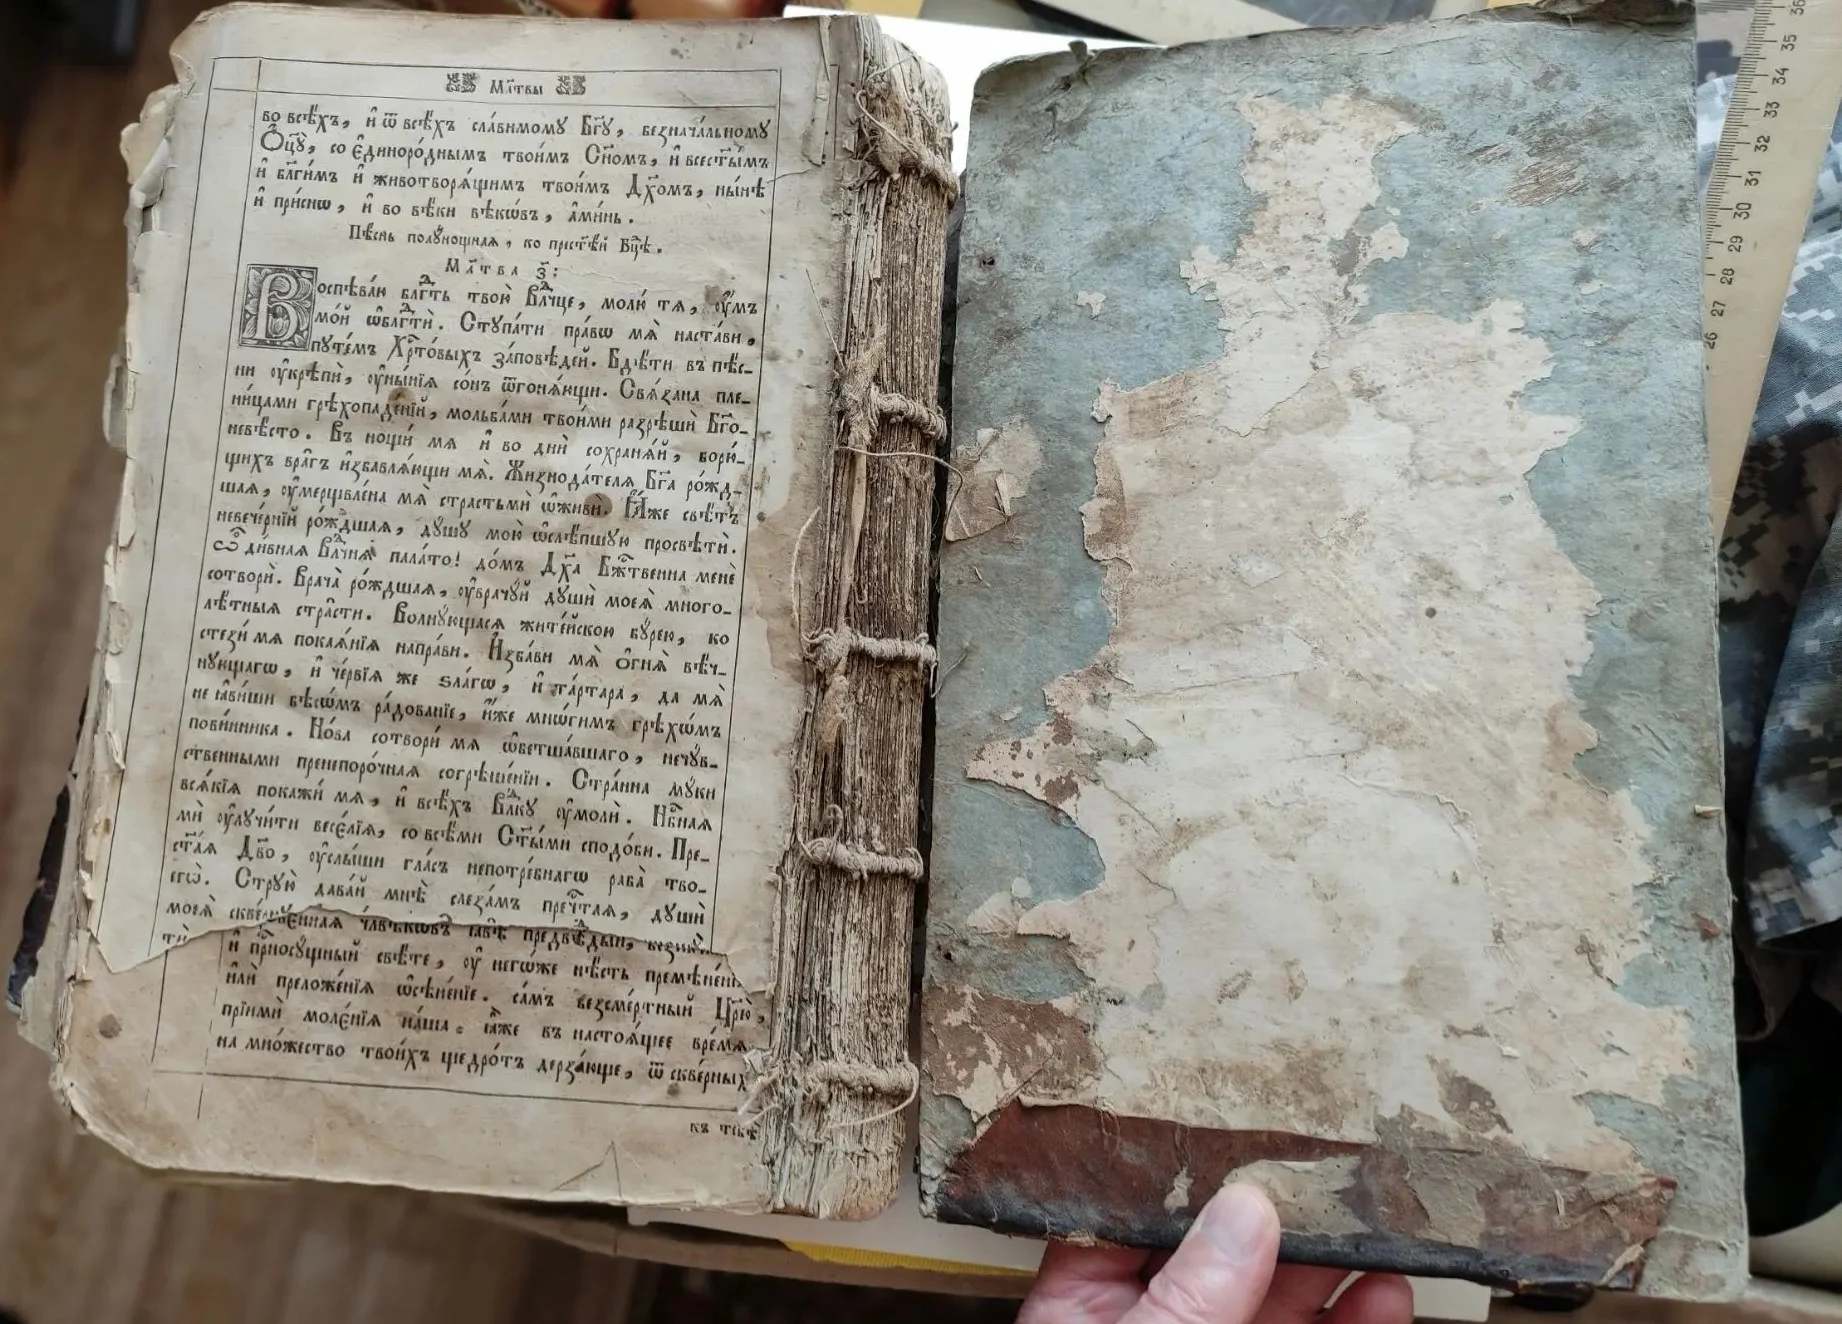 Мл҃твы
во всѣ́хъ, и҆ ѿ всѣ́хъ сла́вимому Бг҃у, безнача́льному
Ѻ҆ц҃у̀, со є҆диноро́днымъ твои́мъ Сн҃омъ, и҆ всест҃ы́мъ
и҆ бл҃ги́мъ и҆ животворѧ́щимъ твои́мъ Дх҃омъ, ны́нѣ
и҆ при́снѡ, и҆ во вѣ́ки вѣкѡ́въ, а҆ми́нь.
Пѣ́снь полу́нощнаѧ, ко прест҃ѣ́й Бц҃ѣ.
Мл҃тва з҃:
Воспѣва́ю блгⷣть твою̀ Влⷣчце, молю́ тѧ, ᲂу҆́мъ
мо́й ѡ҆блгⷣтѝ. Ступа́ти пра́вѡ мѧ̀ наста́ви,
путе́мъ Хрⷭ҇то́выхъ за́повѣдей. Бдѣ́ти въ пѣ́с-
ни ᲂу҆крѣпѝ, ᲂу҆ны́нїѧ со́нъ ѿгонѧ́ющи. Свѧ́зана пле-
ни́цами грѣхопаде́нїй, мольба́ми твои́ми разрѣшѝ Бг҃о-
невѣ́сто. Въ нощи́ мѧ и҆ во днѝ сохранѧ́й, борю́-
щихъ вра́гъ и҆збавлѧ́ющи мѧ̀. Жизнода́телѧ Бг҃а ро́жд-
шаѧ, ᲂу҆мерщвле́на мѧ страстьмѝ ѡ҆живѝ. Ꙗ҆́же свѣ́тъ
невече́рнїй ро́ждшаѧ, ду́шу мою̀ ѡ҆слѣ́пшую просвѣтѝ.
Ѽ ди́внаѧ Влⷣчнѧ пала́то! до́мъ Дх҃а Бжⷭ҇твенна менѐ
сотворѝ. Врача̀ ро́ждшаѧ, ᲂу҆врачу́й душѝ моеѧ̀ много-
лѣ́тныѧ стра́сти. Волну́ющасѧ жите́йскою бу́рею, ко
стези́ мѧ покаѧ́нїѧ напра́ви. И҆зба́ви мѧ̀ ѻ҆гнѧ̀ вѣ́ч-
нующагѡ, и҆ че́рвїѧ же ѕла́гѡ, и҆ та́ртара, да мѧ̀
не ꙗ҆ви́ши бѣсѡ́мъ ра́дованїе, и҆́же мнѡ́гимъ грѣхѡ́мъ
пови́нника. Но́ва сотвори́ мѧ ѡ҆бетша́вшаго, нечу́в-
ственными пренепоро́чнаѧ согрѣше́нїи. Стра́нна му́ки
всѧ́кїѧ покажи́ мѧ, и҆ всѣ́хъ Влⷣку ᲂу҆молѝ. Нбⷭ҇наѧ
мѝ ᲂу҆лучи́ти весе́лїѧ, со всѣ́ми Ст҃ы́ми сподо́би. Пре-
ст҃а́ѧ Дв҃о, ᲂу҆слы́ши гла́съ непотре́бнагѡ раба̀ тво-
егѡ̀. Струю̀ дава́й мнѣ̀ слеза́мъ преч҇тⷭаѧ, душѝ
моеѧ̀ скве́рну
и҆ присносу́щный свѣ́те, ᲂу҆ негѡ́же нѣ́сть премѣне́нїе
и҆лѝ преложе́нїѧ ѡ҆сѣне́нїе. са́мъ безсме́ртный Цр҃ю̀,
прїимѝ моле́нїѧ на́ша. ꙗ҆̀же въ настоѧ́щее вре́мѧ
на мно́жество твои́хъ щедро́тъ дерза́юще, ѿ скве́рныхъ
къ тебѣ